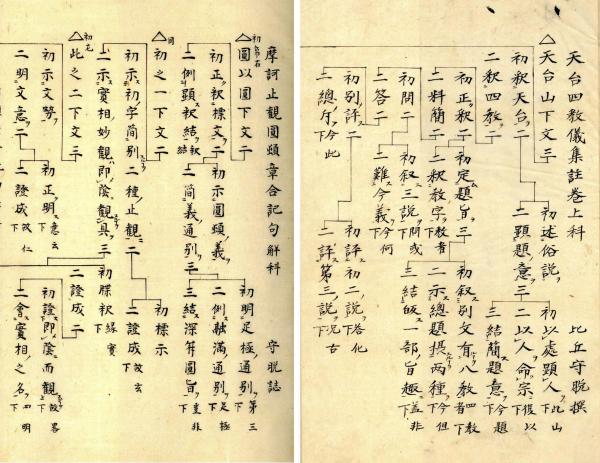 天台四教儀集註卷上科
比丘守脱撰
△天台山下文三
初釋天台二
初述俗説
初以處顕人下此山
二以人命宗下後以
二顕題意三
三結簡題意下今題
二釋四教二
初正釈二
初定題旨三
初叙別文有八教下四教者
二示總題摂両種下今但
三結㫖一部旨趣下盖非
二釈教宗下教者
二料簡二
初問二
初叙三説下問或
二難今義下今何
二答二
初別評二
初評初二説下答化
二評第三説下况古
二總斥下今此
摩訶止觀圓頓章合記句解科
守脱誌
△圓以圓下文二
初正釈標文二
初示圓頓義
初明足極通別下第三
二例融満通別下足極
三結深算圓旨下豈非
二簡義通別三
二例顕釈結
△初之一下文二
初示初字簡別二種止觀二
初標示
二證成下故玄
二示實相妙觀即陰觀具三
初牒釈下縁實
二證成二
初證即陰而觀下故畧
二會實相之名下四明
△此之二下文三
初示文勢
二明文意二
初正明下意云
二證成下故仁